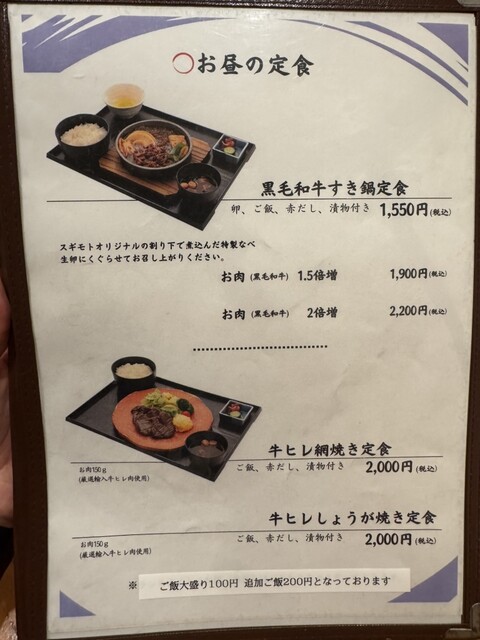 ○お昼の定食
黒毛和牛すき鍋定食
卵、ご飯、赤だし、漬物付き 1,550円(税込)
スギモトオリジナルの割り下で煮込んだ特製なべ
生卵にくぐらせてお召し上がりください。
お肉(黒毛和牛) 1.5倍増 1,900円(税込)
お肉(黒毛和牛) 2倍増 2,200円(税込)
牛ヒレ網焼き定食
お肉150g
(厳選輸入牛ヒレ肉使用)
ご飯、赤だし、漬物付き 2,000円(税込)
牛ヒレしょうが焼き定食
お肉150g
(厳選輸入牛ヒレ肉使用)
ご飯、赤だし、漬物付き 2,000円(税込)
※ ご飯大盛り100円 追加ご飯200円となっております